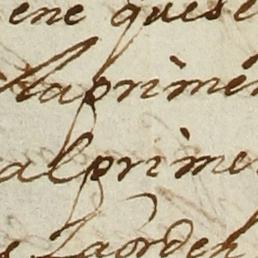 ene quese
laprimer
alprimer
Laorden